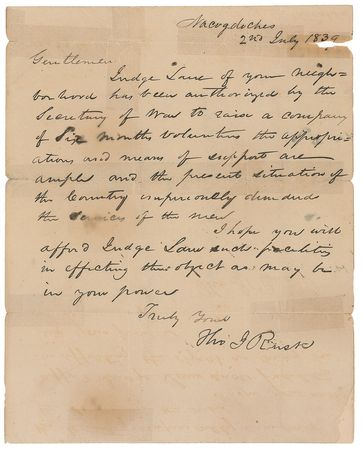 Nacogdoches
2nd July 1839
Gentlemen
Judge Lane of your neigh-
borhood has been authorized by the
Secretary of War to raise a company
of Six months volunteers the appropri-
ations and means of support are
ample and the present situation of
the Country imperiously demand
the services of the men
I hope you will
afford Judge Lane such facilities
in effecting the object as may be
in your power
Truly Yours
Tho J Rusk